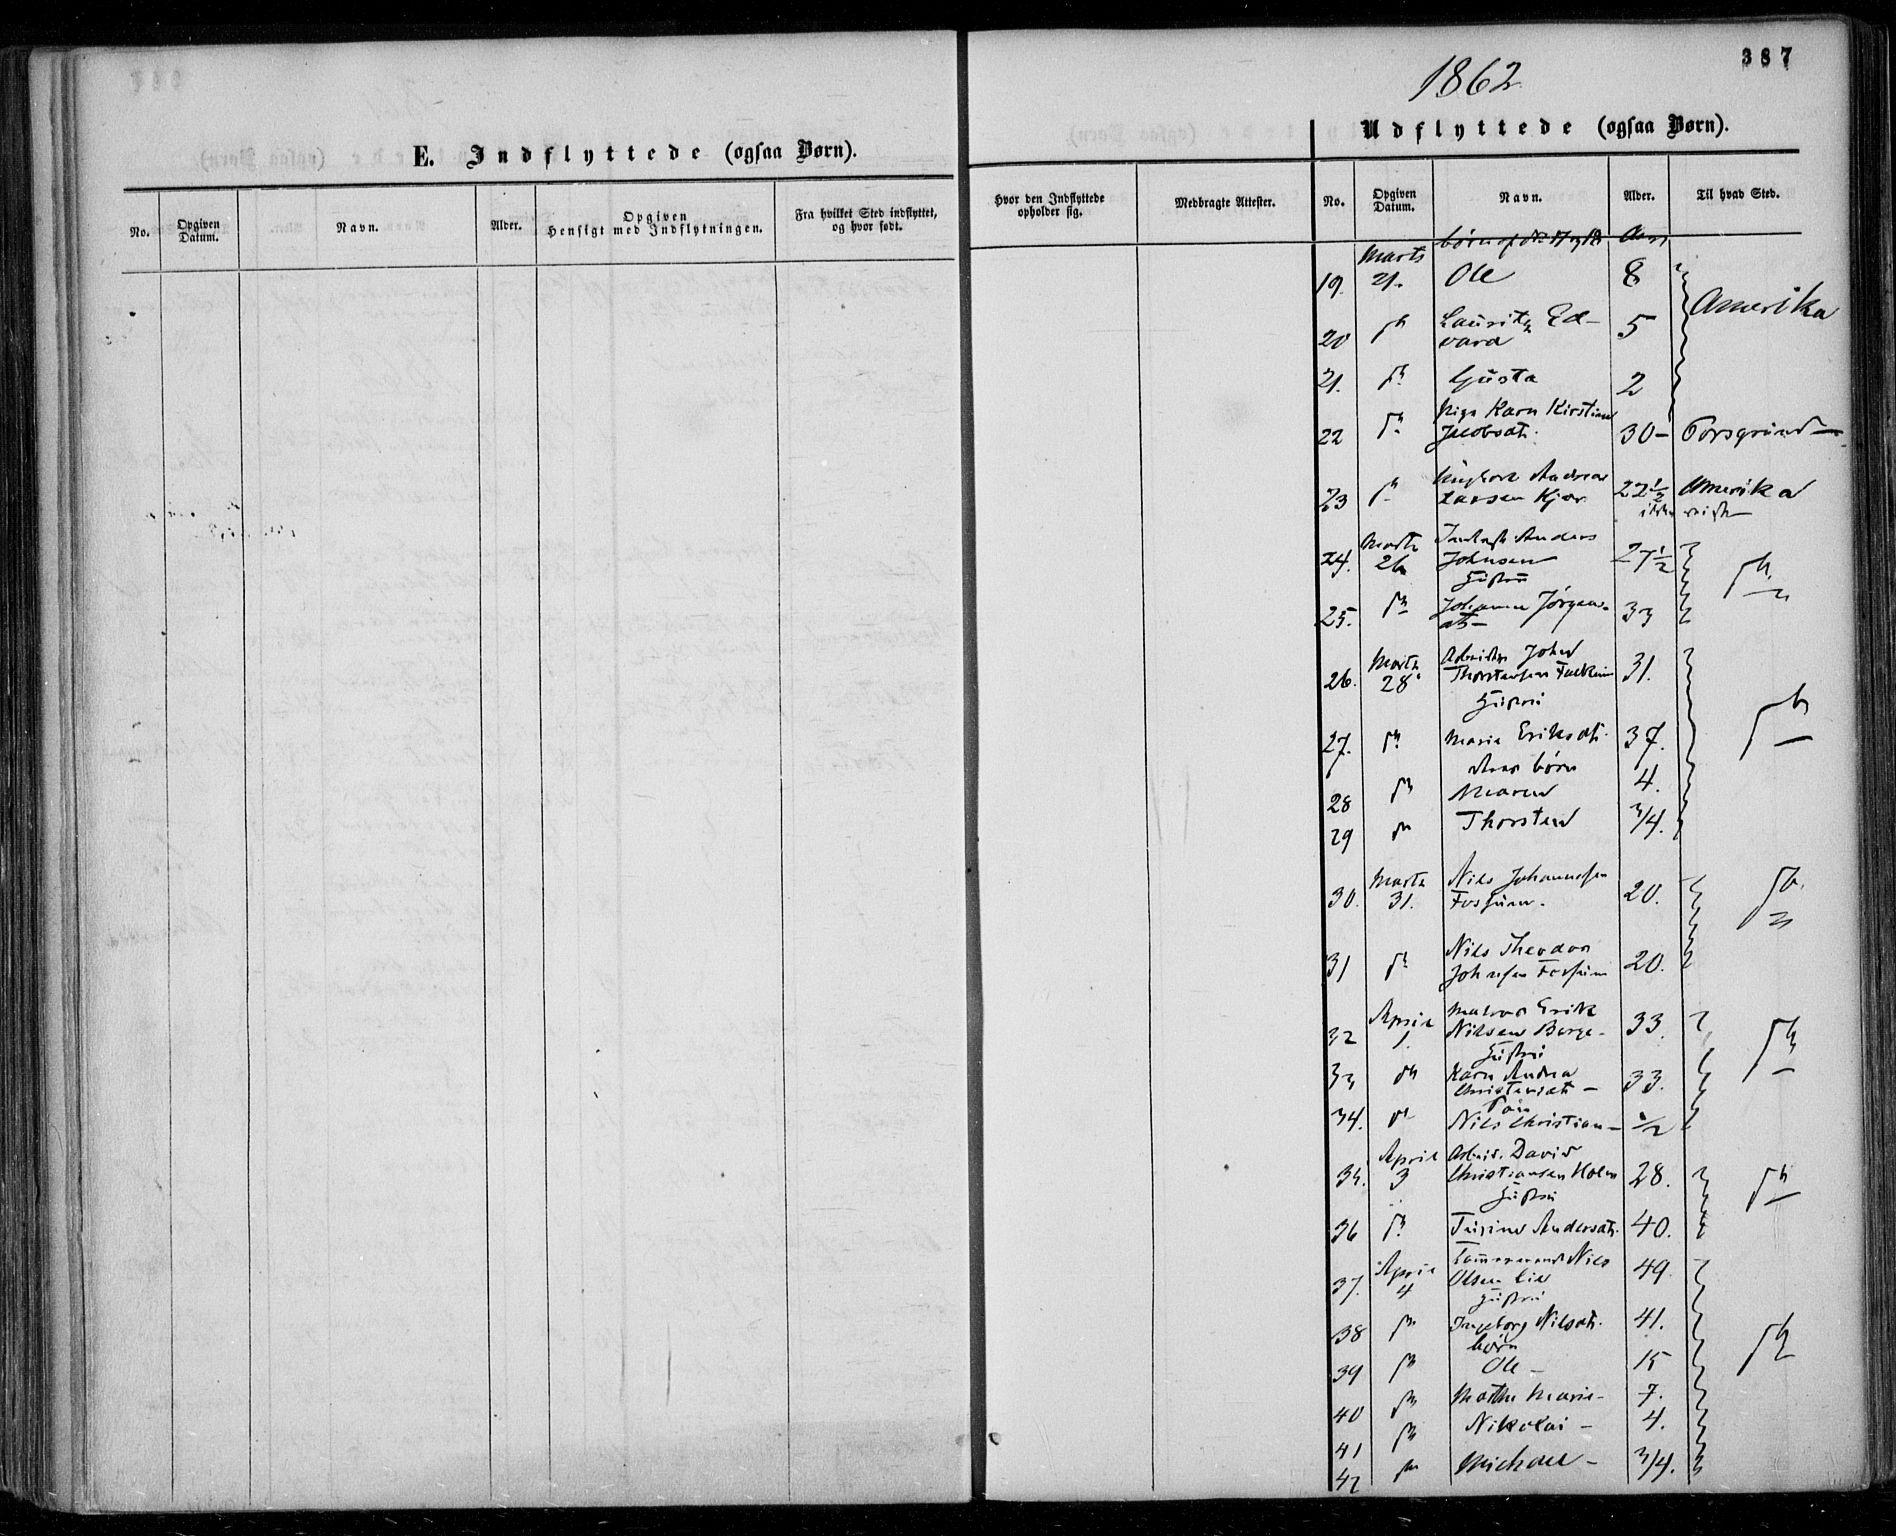 387
1862
E. Indflyttede (ogsaa Børn).
Udflyttede (ogsaa Børn).
No.
Opgiven
Datum.
Navn.
Alder.
Opgiven
Hensigt med Indflytningen.
Fra hvilket Sted indflyttet,
og hvor født.
Hvor den Indflyttede
opholder sig.
Medbragte Attester.
No.
Opgiven
Datum.
Navn.
Alder.
Til hvad Sted.
børn af
Marts
19. 21. Ole 8
Amerika
20 Lauritz Ed-
vard 5
21. Gusta 2
Pige Karn Kirstine
22 Jacobsdt. 30- Porsgrund
Ungkarl Andreas
23 Larsen Kjær 22½ Amerika
Marts Anders
24. 26 Johnsen 27½
Hustru
25. Johanne Jørgens-
dt- 33
Marts Arbeider John
26. 28 Thorstensen 31.
Hustru
27. Maria Eriksdt. 37.
børn
28 Maren 4.
29 Thorsten 3/4.
Marts Nils Johannesen
30. 31. Fossum. 20.
Nils Theodor
31 Johnsen Fossum 20.
April Matros Erik
32 1 Nilsen Borge- 33.
Hustru
33 Karn Andrea
Christensdt- 33.
34. Nils Christian- ½
April Arbeid. David
35. 3 Christiansen Holm 28.
Hustru
36 Andersdt. 40.
April Tømmermand Nils
37. 4 Olsen Lie 49.
Hustru
38 Ingeborg Nilsdt. 41.
børn
39 Ole- 15
40 Marthe Marie- 7.
41 Nikolai- 4.
42 Michael- 3/4.